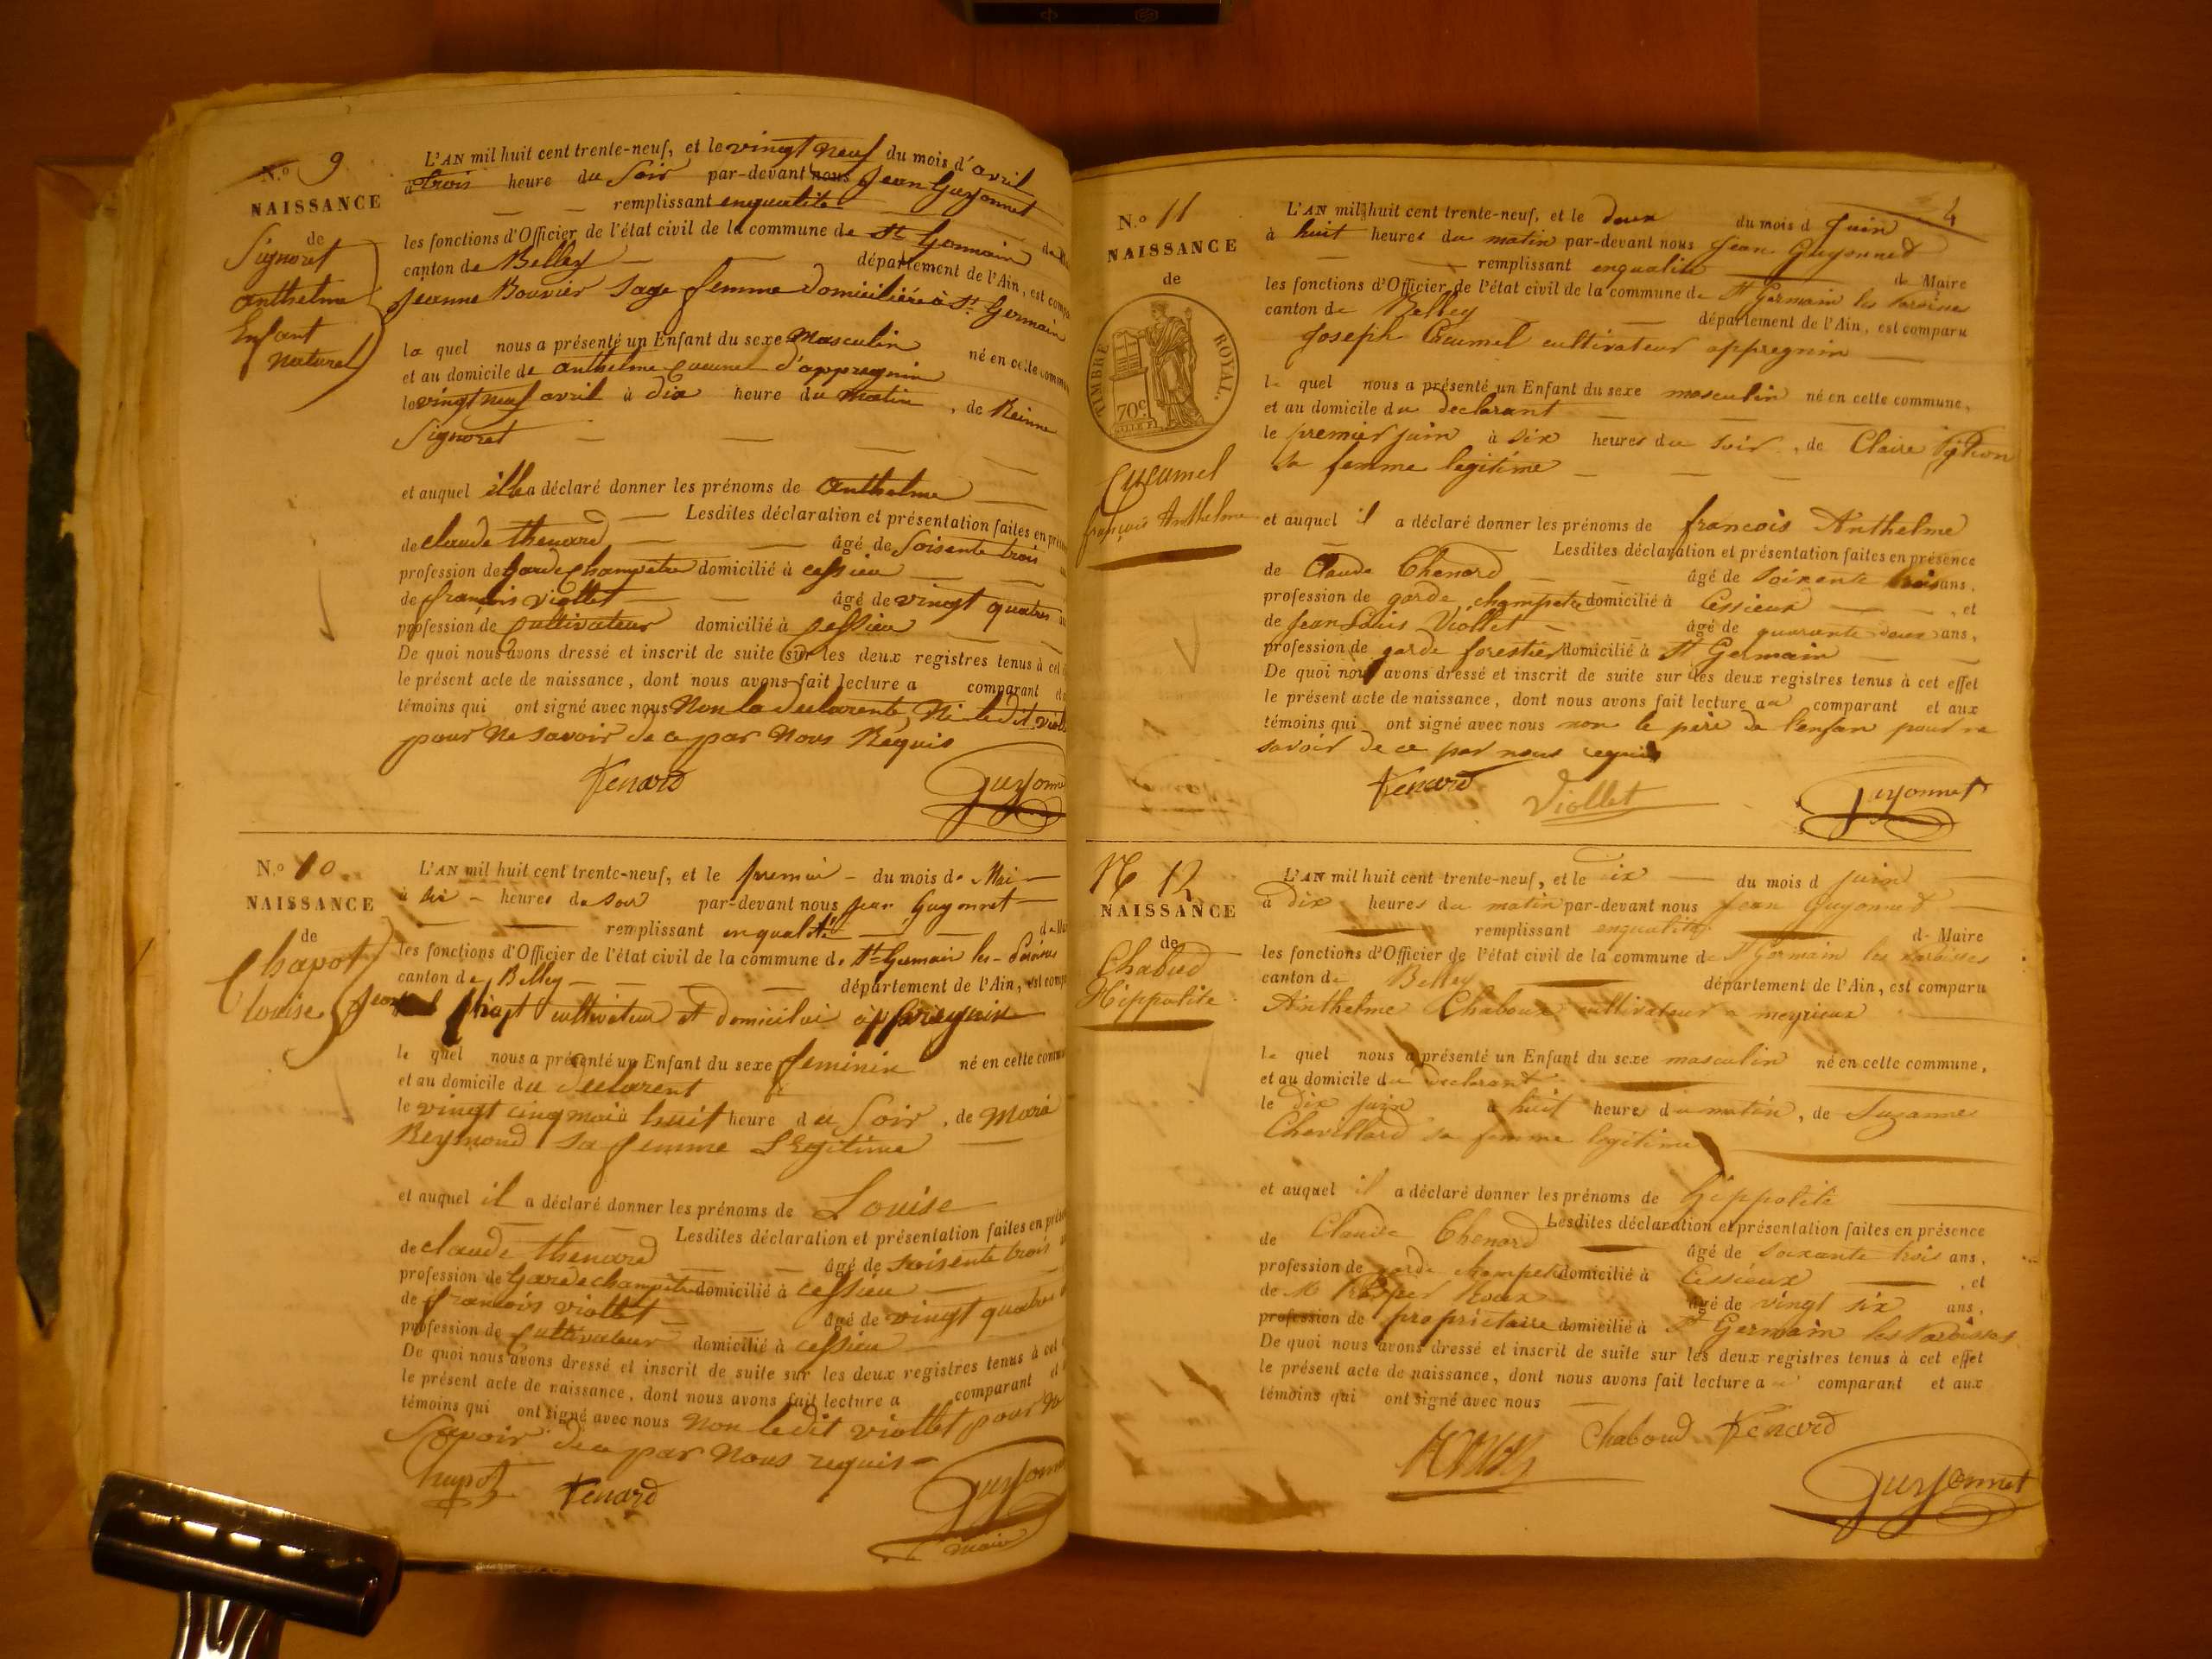 N.o 9
NAISSANCE
de
Signoret
anthelme
Enfant
naturel
L'AN mil huit cent trente-neuf, et le vingt neuf du mois d'avril
à trois heure du Soir par-devant nous Jean Guyonnet
remplissant enqualité
les fonctions d'Officier de l'état civil de la commune de St Germain
canton de Belley département de l'Ain, est
Jeanne Bouvier Sage femme domiciliée à St Germain
la quel nous a présenté un Enfant du sexe Masculin né en cette
et au domicile de anthelme Cucumel d'appregnin
le vingt neuf avril à dix heure du matin, de Reinne
Signoret
et auquel elle a déclaré donner les prénoms de Anthelme
Lesdites déclaration et présentation faites en
de claude thenard âgé de Soisente trois
profession de Garde Champetre domicilié à cessieu
de françois viollet âgé de vingt quatre
profession de Cultivateur domicilié à cessieu
De quoi nous avons dressé et inscrit de suite sur les deux registres tenus à cet
le présent acte de naissance, dont nous avons fait lecture a comparant
témoins qui ont signé avec nous Non la declarente, Ni le dit
pour Ne Savoir de ce par Nous Requis
Tenard
N.o 10
NAISSANCE
de
Chapot
Louise
L'AN mil huit cent trente-neuf, et le premier du mois de Mai
à six heures du soir par-devant nous Jean Guyonnet
remplissant en qualité
les fonctions d'Officier de l'état civil de la commune de St Germain les
canton de Belley département de l'Ain, est
Chapot cultivateur et domicilié à appregnin
le quel nous a présenté un Enfant du sexe feminin né en cette
et au domicile du declarent
le vingt cinq mai à huit heure du Soir, de Marie
Reymond Sa femme Legitime
et auquel il a déclaré donner les prénoms de Louise
Lesdites déclaration et présentation faites en
de claude thenard âgé de soisente trois
profession de Garde champetre domicilié à cessieu
de françois viollet âgé de vingt quatre
profession de Cultivateur domicilié à cessieu
De quoi nous avons dressé et inscrit de suite sur les deux registres tenus à cet
le présent acte de naissance, dont nous avons fait lecture a comparant
témoins qui ont signé avec nous Non ledit viollet pour
Savoir de ce par Nous requis
Chapot Tenard
maire
4
N.o 11
NAISSANCE
de
TIMBRE ROYAL.
70c
Cucumel
françois Anthelme
L'AN mil huit cent trente-neuf, et le deux du mois d Juin
à huit heures du matin par-devant nous Jean Guyonnet
remplissant enqualité de Maire
les fonctions d'Officier de l'état civil de la commune de St Germain les Paroisses
canton de Belley département de l'Ain, est comparu
Joseph Cucumel cultivateur appregnin
le quel nous a présenté un Enfant du sexe masculin né en cette commune,
et au domicile du declarant
le premier juin à six heures du soir, de Claire
sa femme legitime
et auquel il a déclaré donner les prénoms de francois Anthelme
Lesdites déclaration et présentation faites en présence
de Claude Thenard âgé de soixante trois ans,
profession de garde champetre domicilié à Cessieux, et
de Jean Louis Viollet âgé de quarante deux ans,
profession de garde forestier domicilié à St Germain
De quoi nous avons dressé et inscrit de suite sur les deux registres tenus à cet effet
le présent acte de naissance, dont nous avons fait lecture au comparant et aux
témoins qui ont signé avec nous non le père de l'enfan pour ne
savoir de ce par nous requis
Tenard Viollet Guyonnet
N 12
NAISSANCE
de
Chabud
Hippolite
L'AN mil huit cent trente-neuf, et le dix du mois d juin
à dix heures du matin par-devant nous Jean Guyonnet
remplissant enqualité de Maire
les fonctions d'Officier de l'état civil de la commune de St Germain les Paroisses
canton de Belley département de l'Ain, est comparu
Anthelme Chaboux cultivateur a meyrieux
le quel nous a présenté un Enfant du sexe masculin né en cette commune,
et au domicile du declarant
le dix juin à huit heures du matin, de Suzanne
Chevillard sa femme legitime
et auquel il a déclaré donner les prénoms de hippolite
Lesdites déclaration et présentation faites en présence
de Claude Thenard âgé de soixante trois ans,
profession de garde champetre domicilié à Cessieux, et
de M Roux âgé de vingt six ans,
profession de propriétaire domicilié à St Germain les Paroisses
De quoi nous avons dressé et inscrit de suite sur les deux registres tenus à cet effet
le présent acte de naissance, dont nous avons fait lecture au comparant et aux
témoins qui ont signé avec nous
Chaboud Tenard
Guyonnet